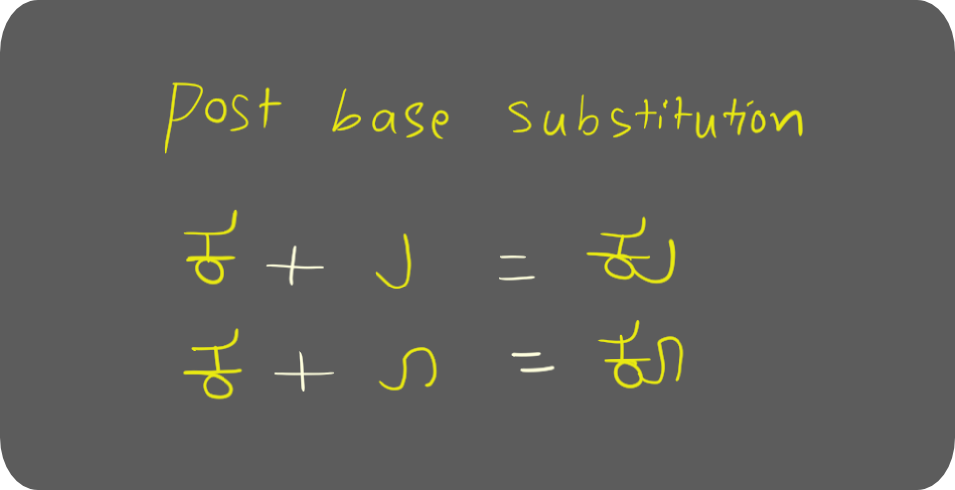 Post base substitution
ಕ + ು = ಕು
ಕ + ೂ = ಕೂ